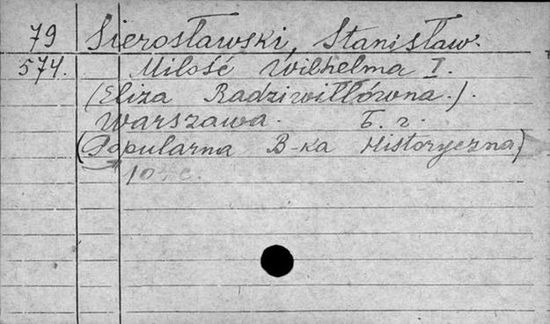 79 Sierosławski, Stanisław.
574. Miłość Wilhelma I.
(Eliza Radziwiłłówna.).
Warszawa. Б. г.
(Popularna B-ka Historyczna)
10